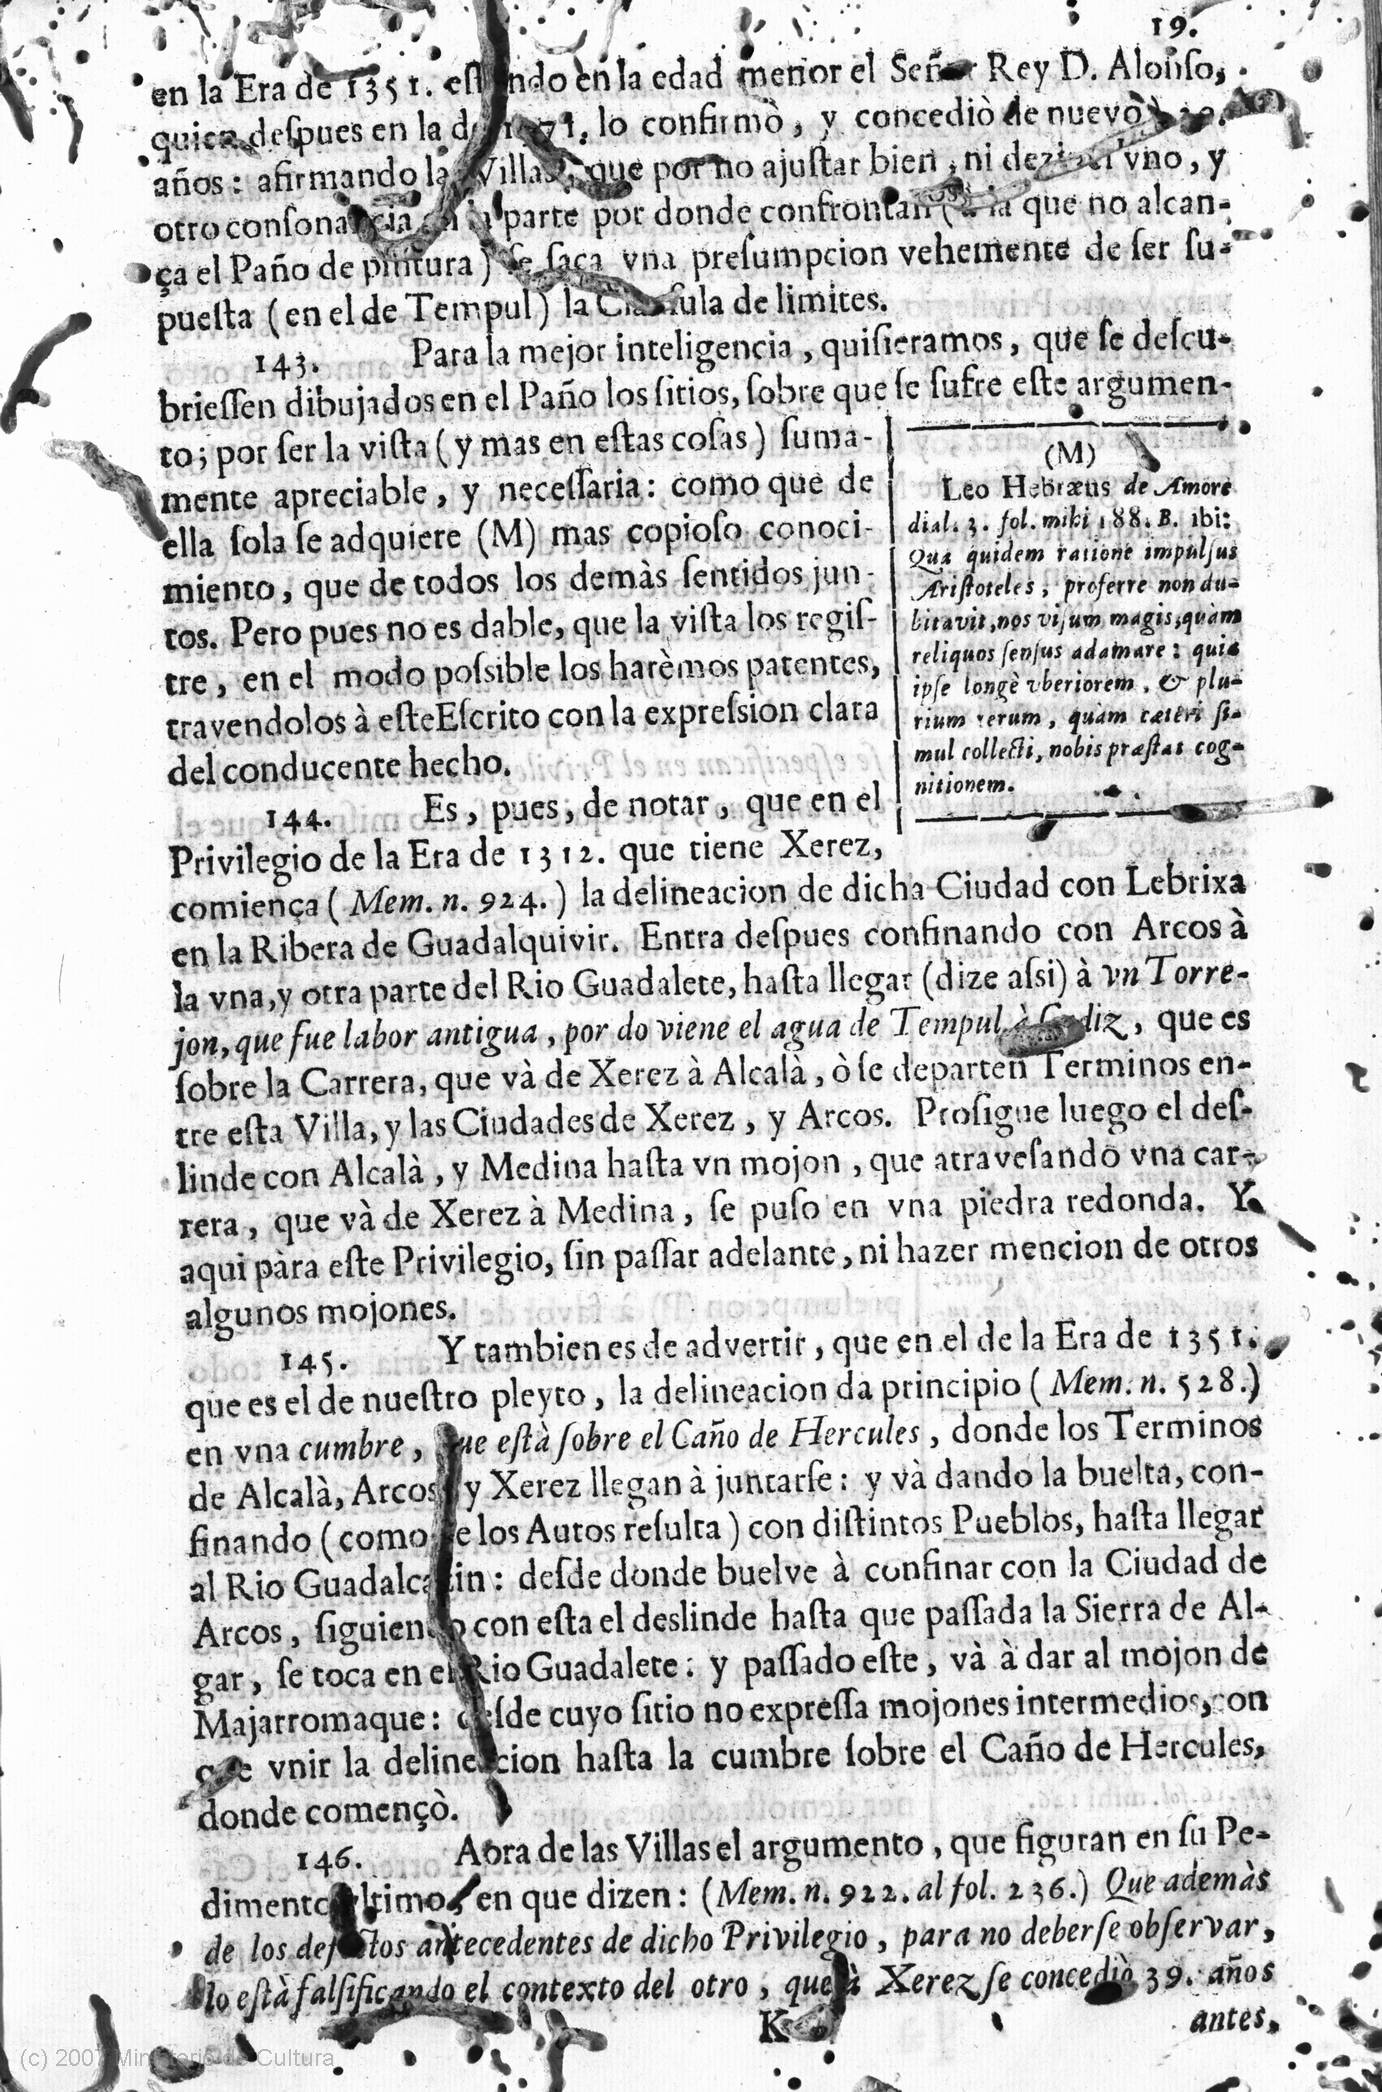 19.
en la Era de 1351. estando en la edad menor el Señor Rey D. Alonso,
quien despues en la de 1371. lo confirmò, y concediò de nuevo
años: afirmando la Villas, que por no ajustar bien, ni dezir el vno, y
otro consonancia en la parte por donde confrontan (à la que no alcan-
ça el Paño de pintura) se saca vna presumpcion vehemente de ser su-
puesta (en el de Tempul) la Clausula de limites.
143. Para la mejor inteligencia, quisieramos, que se descu-
briessen dibujados en el Paño los sitios, sobre que se sufre este argumen-
to; por ser la vista (y mas en estas cosas) suma-
mente apreciable, y necessaria: como que de
ella sola se adquiere (M) mas copioso conoci-
miento, que de todos los demàs sentidos jun-
tos. Pero pues no es dable, que la vista los regis-
tre, en el modo possible los harèmos patentes,
travendolos à este Escrito con la expression clara
del conducente hecho.
(M)
Leo Hebræus de Amore
dial. 3. fol. mihi 188. B. ibi:
Qua quidem ratione impulsus
Aristoteles, proferre non du-
bitavit, nos visum magis, quàm
reliquos sensus adamare: quia
ipse longè vberiorem, & plu-
rium rerum, quàm cæteri si-
mul collecti, nobis præstat cog-
nitionem.
144. Es, pues, de notar, que en el
Privilegio de la Era de 1312. que tiene Xerez,
comiença (Mem. n. 924.) la delineacion de dicha Ciudad con Lebrixa
en la Ribera de Guadalquivir. Entra despues confinando con Arcos à
la vna, y otra parte del Rio Guadalete, hasta llegar (dize assi) à vn Torre-
jon, que fue labor antigua, por do viene el agua de Tempul à Cadiz, que es
sobre la Carrera, que và de Xerez à Alcalà, ò se departen Terminos en-
tre esta Villa, y las Ciudades de Xerez, y Arcos. Prosigue luego el des-
linde con Alcalà, y Medina hasta vn mojon, que atravesando vna car-
rera, que và de Xerez à Medina, se puso en vna piedra redonda. Y
aqui pàra este Privilegio, sin passar adelante, ni hazer mencion de otros
algunos mojones.
145. Y tambien es de advertir, que en el de la Era de 1351.
que es el de nuestro pleyto, la delineacion da principio (Mem. n. 528.)
en vna cumbre, que està sobre el Caño de Hercules, donde los Terminos
de Alcalà, Arcos, y Xerez llegan à juntarse: y và dando la buelta, con-
finando (como de los Autos resulta) con distintos Pueblos, hasta llegar
al Rio Guadalcazin: desde donde buelve à confinar con la Ciudad de
Arcos, siguiendo con esta el deslinde hasta que passada la Sierra de Al-
gar, se toca en el Rio Guadalete: y passado este, và à dar al mojon de
Majarromaque: desde cuyo sitio no expressa mojones intermedios, con
que vnir la delineacion hasta la cumbre sobre el Caño de Hercules,
donde començò.
146. Aora de las Villas el argumento, que figuran en su Pe-
dimento vltimo, en que dizen: (Mem. n. 922. al fol. 236.) Que ademàs
de los defectos antecedentes de dicho Privilegio, para no deberse observar,
lo està falsificando el contexto del otro, que à Xerez se concediò 39. años
K antes,
(c) 2007 Ministerio de Cultura